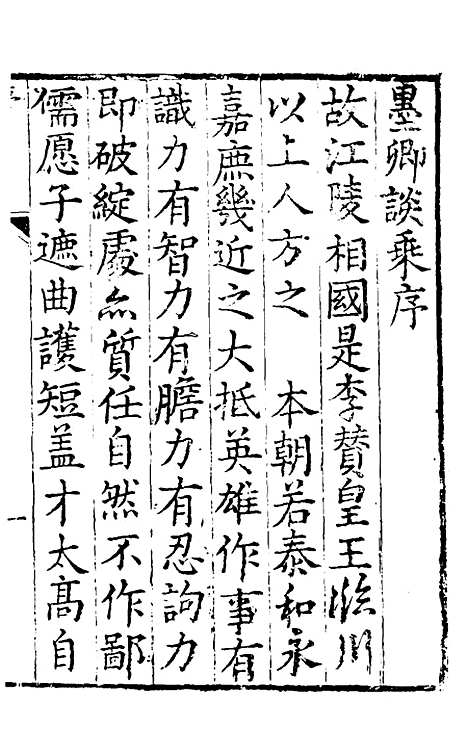 墨卿談乘序
故江陵相國是李贊皇王臨川
以上人方之　本朝若泰和永
嘉庶幾近之大抵英雄作事有
識力有智力有膽力有忍詢力
即破綻處亦質任自然不作鄙
儒愿子遮曲護短盖才太髙自
一